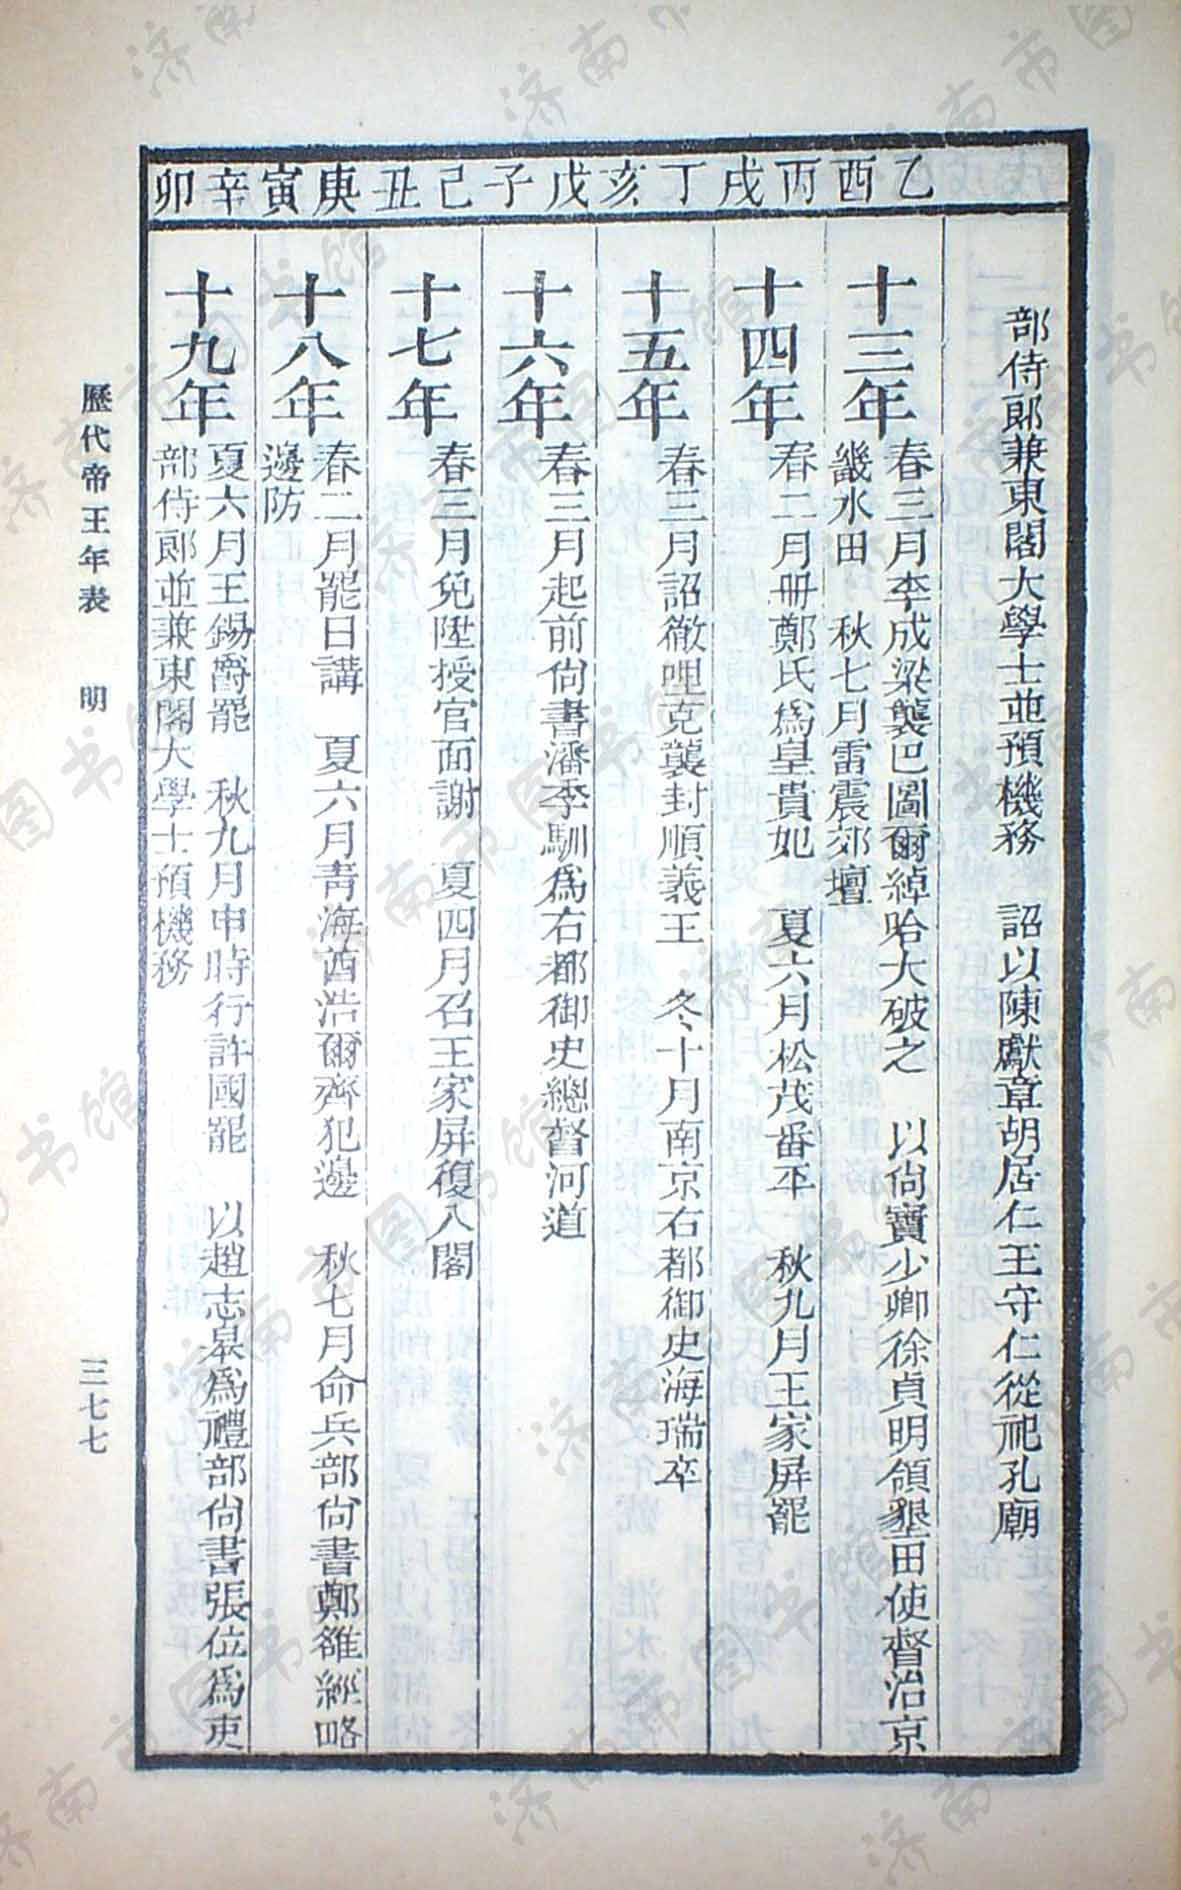 乙酉
丙戌
丁亥
戊子
己丑
庚寅
辛卯
部侍郎兼東閣大學士並預機務　詔以陳獻章胡居仁王守仁從祀孔廟
十三年
春三月李成梁襲巴圖爾綽哈大破之　以尚寶少卿徐貞明領墾田使督治京
畿水田　秋七月雷震郊壇
十四年
春二月冊鄭氏爲皇貴妃　夏六月松茂番平　秋九月王家屏罷
十五年
春三月詔徹哩克襲封順義王　冬十月南京右都御史海瑞卒
十六年
春三月起前尚書潘季馴爲右都御史總督河道
十七年
春三月免陞授官面謝　夏四月召王家屏復入閣
十八年
春二月罷日講　夏六月青海酋浩爾齊犯邊　秋七月命兵部尚書鄭雒經略
邊防
十九年
夏六月王錫爵罷　秋九月申時行許國罷　以趙志皋爲禮部尚書張位爲吏
部侍郎並兼東閣大學士預機務
歷代帝王年表　明
三七七
济南市图书馆